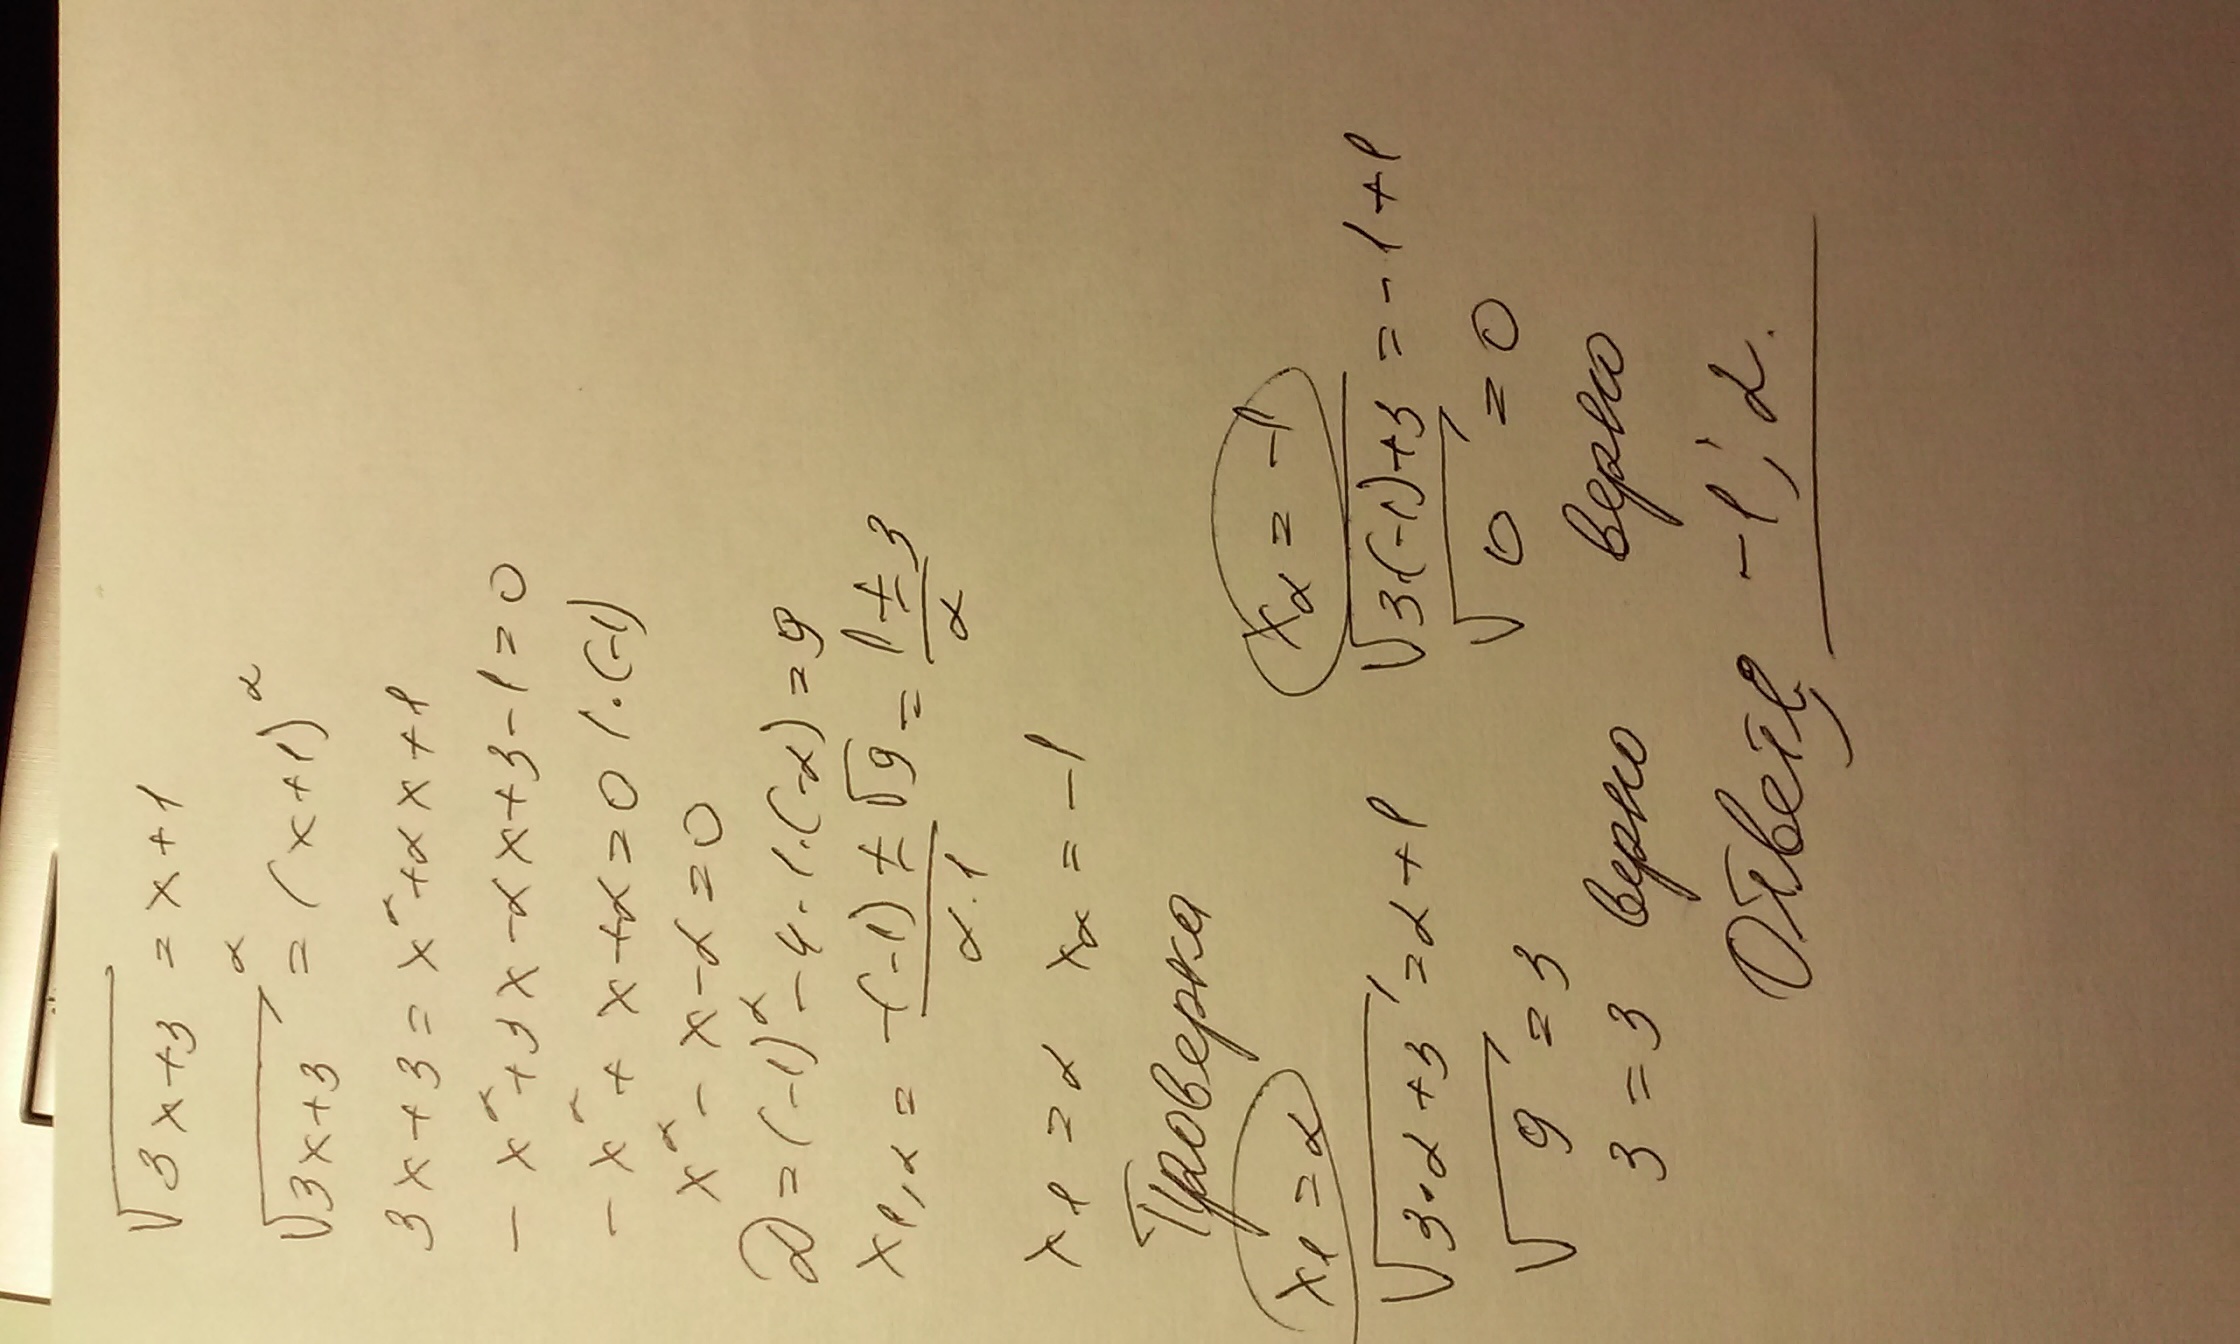 √3x+3 = x+1
√3x+3² = (x+1)²
3x+3 = x²+2x+1
-x²+3x-2x+3-1=0
-x²+x+2=0 |·(-1)
x²-x-2=0
D=(-1)²-4·1·(-2)=9
x1,2 = -(-1)±√9/2·1 = 1±3/2
x1=2 x2=-1
Проверка
x1=2 x2=-1
√3·2+3=2+1 √3·(-1)+3=-1+1
√9=3 √0=0
3=3 верно верно
Ответ, -1; 2.